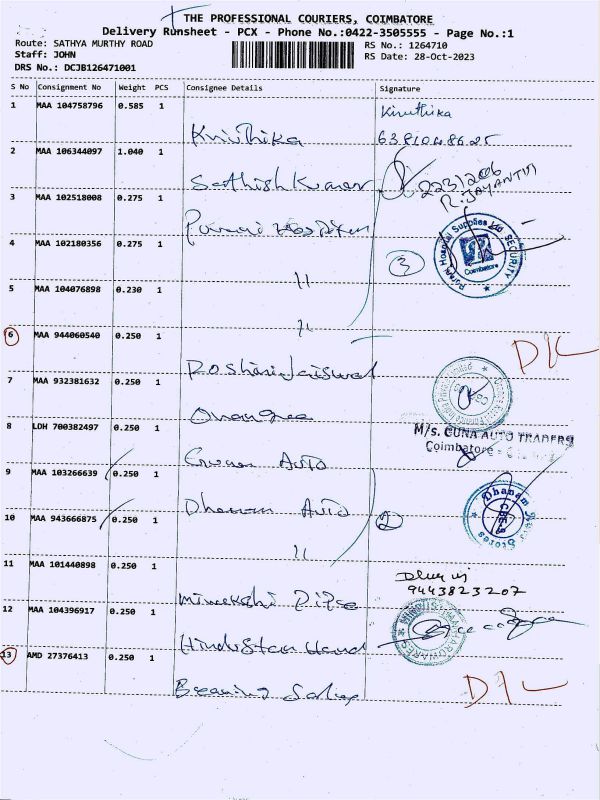 THE PROFESSIONAL COURIERS, COIMBATORE
Delivery Runsheet - PCX - Phone No.:0422-3505555 - Page No.:1
Route: SATHYA MURTHY ROAD
RS No.: 1264710
Staff: JOHN
RS Date: 28-Oct-2023
DRS No.: DCJB126471001
S No Consignment No Weight PCS Consignee Details Signature
1 MAA 104758796 0.585 1 Kiruthika
Kruthika
2 MAA 106344097 1.040 1
Sathish Kumar
R. JAYANTHI
3 MAA 102518008 0.275 1
4 MAA 102180356 0.275 1
11
3
Hospital Supplies Ltd SECURITY
Coimbatore
5 MAA 104076898 0.230 1
11
6 MAA 944060540 0.250 1
Roshini Jaiswal
D/L
7 MAA 932381632 0.250 1
8 LDH 700382497 0.250 1
M/s. GUNA AUTO TRADERS
Coimbatore -
Auto
9 MAA 103266639 0.250 1
Dhanam Auto
2
Dhanam Auto Stores
CBE-3
10 MAA 943666875 0.250 1
11
11 MAA 101440898 0.250 1
9443823207
Minakshi Pipe
12 MAA 104396917 0.250 1
Hindustan Hard
HARDWARES
13 AMD 27376413 0.250 1
Bearing Sales
D/L